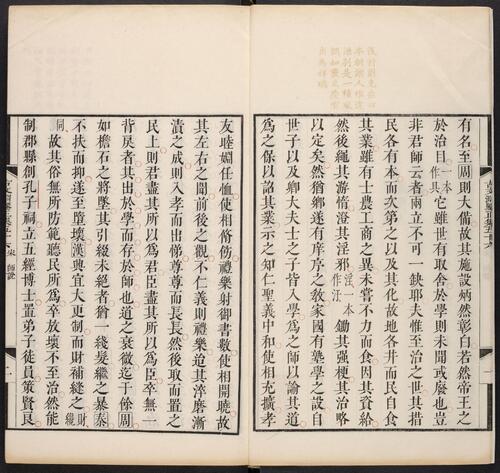 有名至周則大備故其施設炳然彰白若然帝王之
於治目一本作具它雖世有取舍於學則未聞或廢也豈
非君師云者兩立不可一缺耶夫惟至治之世其措
民各有本而次第之以及其化故地各井而民自食
其業雖有士農工商之異未嘗不力而食因其資給
然後繩其游惰澄其淫邪淫一本作汙鋤其强梗其治略
以定矣然猶鄉遂有庠序之教家國有塾學之設自
世子以及卿大夫士之子皆入學為之師以諭其道
為之保以詔其業示之以知仁聖義中和使相充擴孝
友睦婣任恤使相脩飭禮樂射御書數使相開曉故
其左右之聞前後之觀不仁義則禮樂迨其淬磨漸
漬之成則入孝而出悌尊尊而長長然後取而置之
民上則君盡其所以為君臣盡其所以為臣卒無一
背戾者其出於學而存於師也道之衰微迄于餘周
如檐石之將墜其引綴未絕者猶一綫髮繼之暴秦
不扶而抑遂至墮壞漢興宜大更制而財補縫之財纔
同故其俗無所防範聽民所為卒放壞不至治然能
制郡縣剏孔子祠立五經博士置弟子徒員策賢良